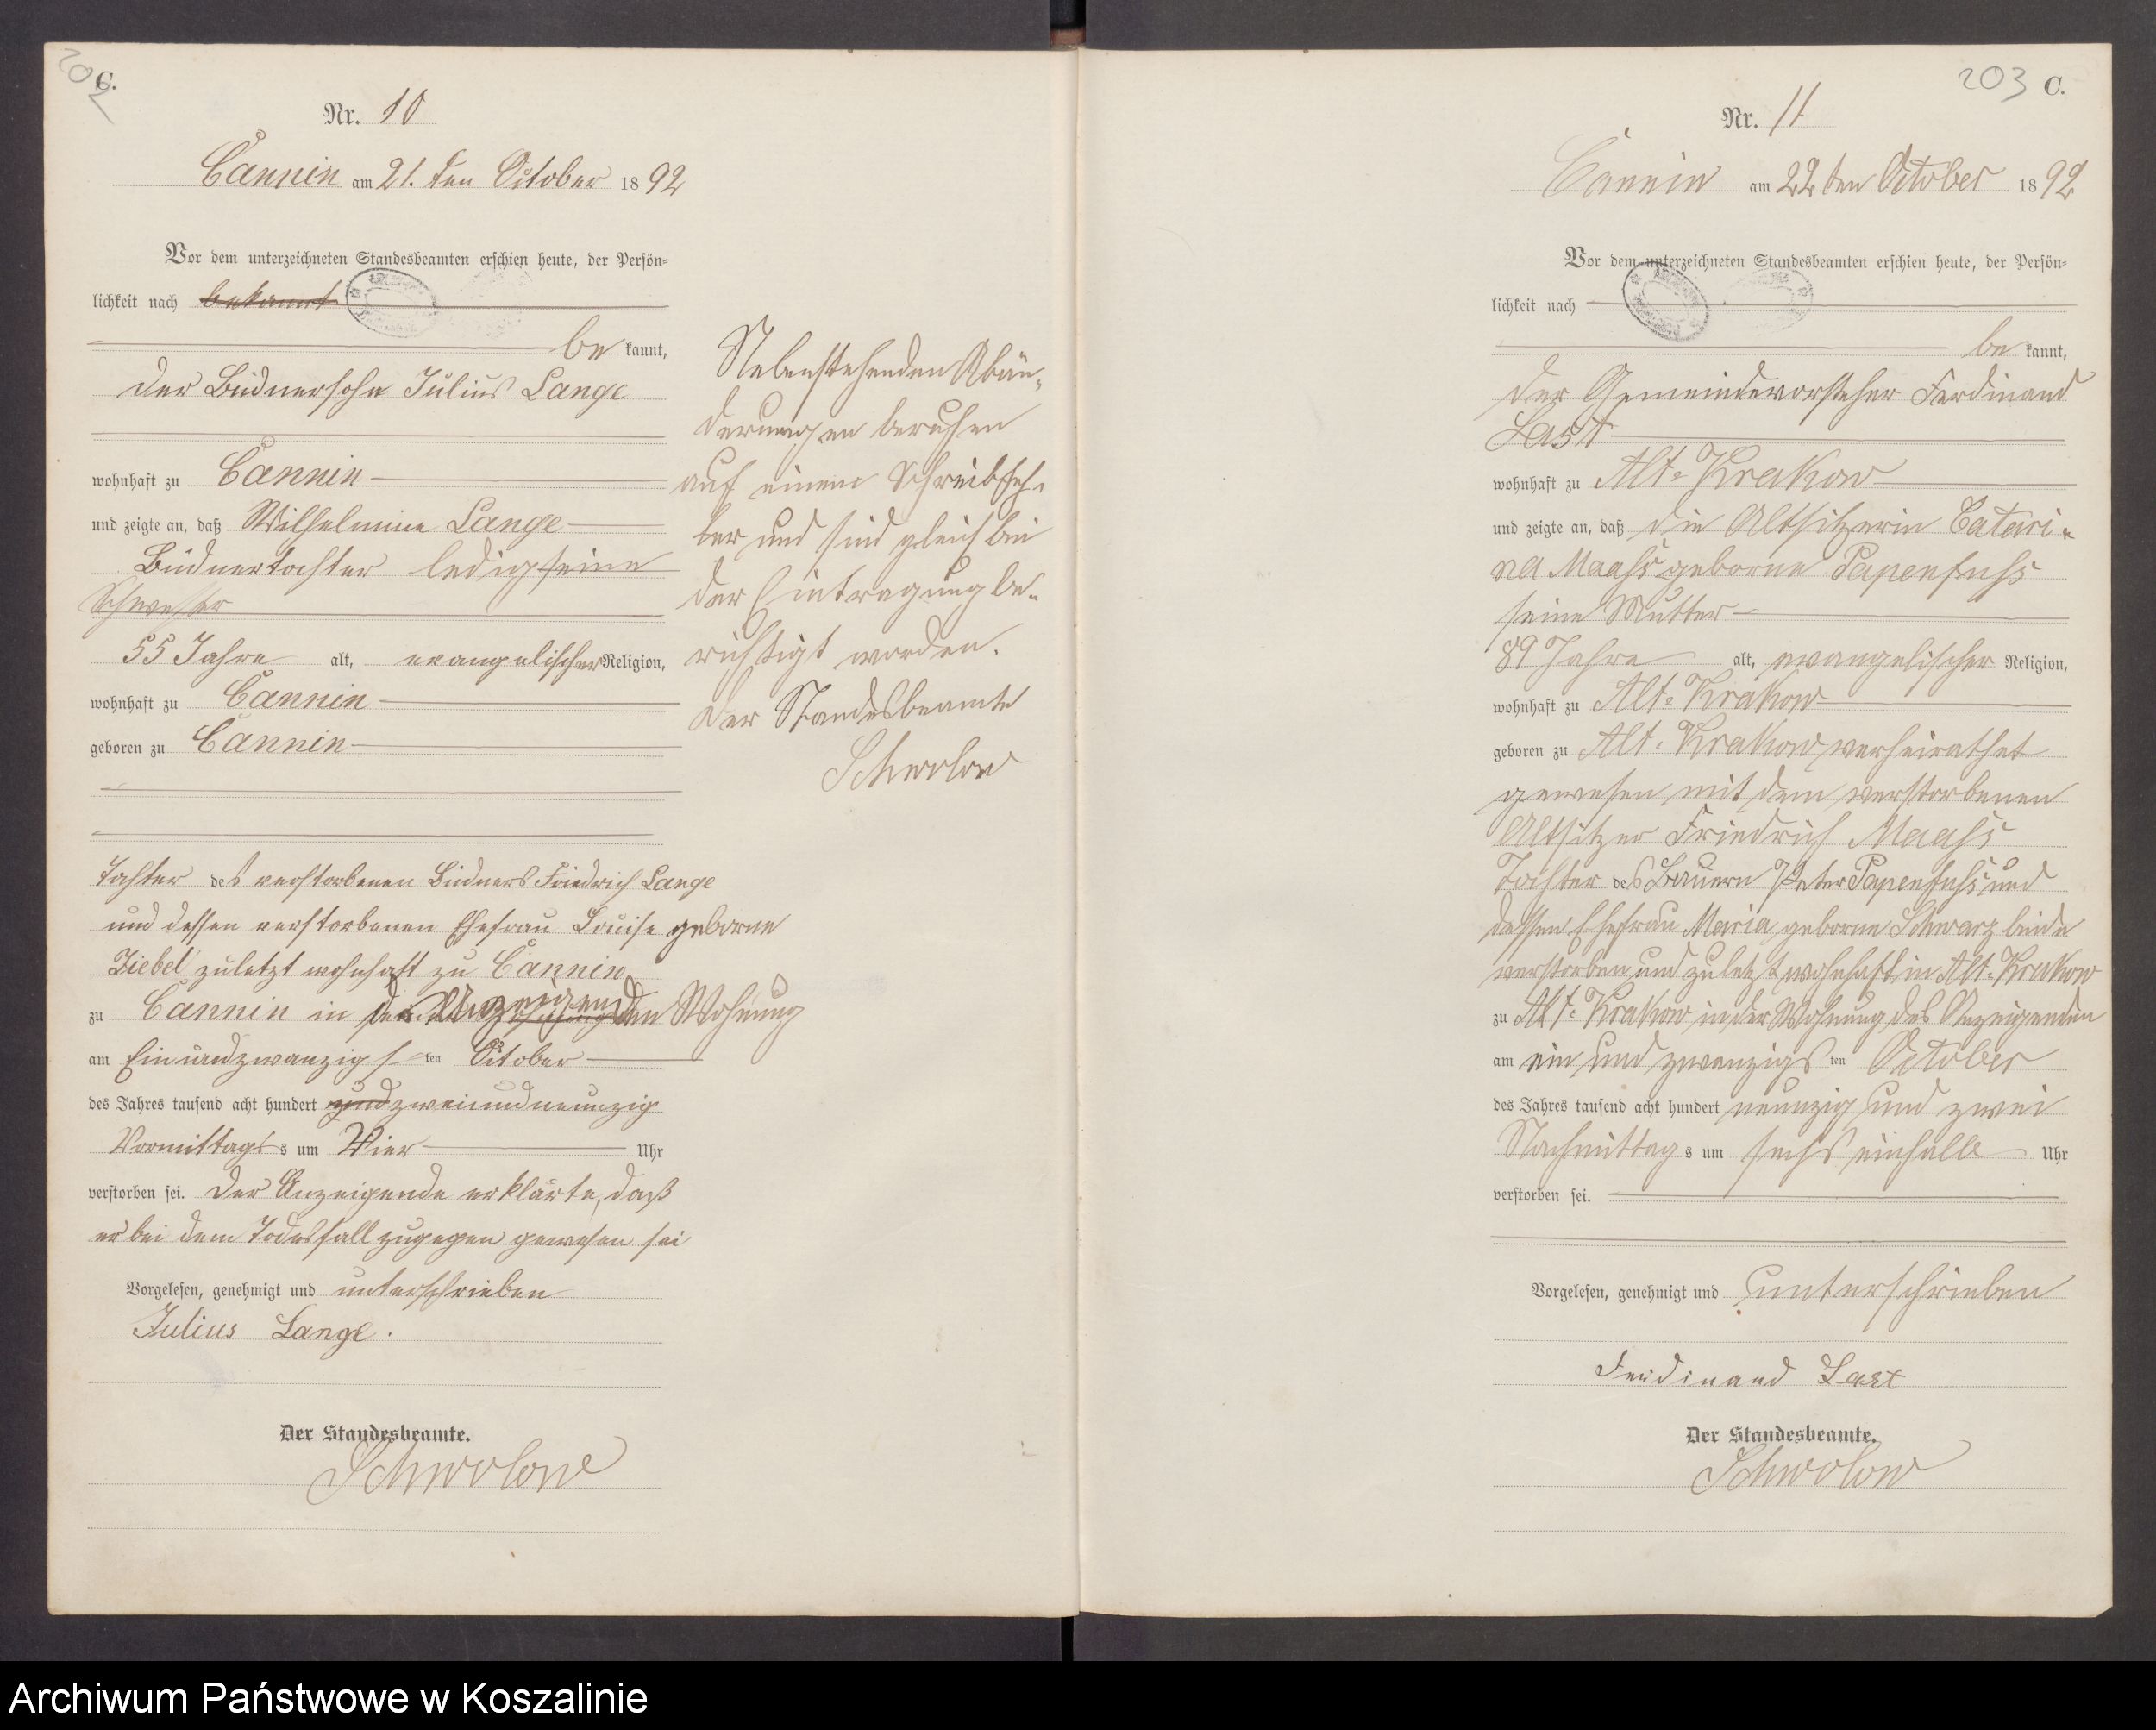 202
C.
Nr. 10
Cannin am 21. ten October 1892
Vor dem unterzeichneten Standesbeamten erschien heute, der Persön-
lichkeit nach bekannt
be kannt,
der Büdnersohn Julius Lange
wohnhaft zu Cannin
und zeigte an, daß Wilhelmine Lange
Büdnertochter ledig seine
Schwester
55 Jahre alt, evangelischer Religion,
wohnhaft zu Cannin
geboren zu Cannin
Tochter des verstorbenen Büdners Friedrich Lange
und dessen verstorbenen Ehefrau Louise geborne
Ziebel zuletzt wohnhaft zu Cannin
zu Cannin in des Anzeigenden Wohnung
am Ein und zwanzigsten October
des Jahres tausend acht hundert und zweiundneunzig
Vormittags s um Vier Uhr
verstorben sei. Der Anzeigende erklärte, daß
er bei dem Todesfall zugegen gewesen sei
Vorgelesen, genehmigt und unterschrieben
Julius Lange.
Der Standesbeamte.
Schwolow
Nebenstehenden Abän-
derungen beruhen
auf einem Schreibfeh-
ler und sind gleich bei
der Eintragung be-
richtigt worden.
Der Standesbeamte
Schwolow
203 C.
Nr. 11
Cannin am 22 ten October 1892
Vor dem unterzeichneten Standesbeamten erschien heute, der Persön-
lichkeit nach
be kannt,
der Gemeindevorsteher Ferdinand
Last
wohnhaft zu Alt-Krakow
und zeigte an, daß die Altsitzerin Catari-
na Maaß geborne Papenfuß
seine Mutter
89 Jahre alt, evangelischer Religion,
wohnhaft zu Alt-Krakow
geboren zu Alt-Krakow verheirathet
gewesen mit dem verstorbenen
Altsitzer Friedrich Maaß
Tochter des Bauern Peter Papenfuß und
dessen Ehefrau Maria geborne Schwarz beide
verstorben und zuletzt wohnhaft in Alt-Krakow
zu Alt-Krakow in der Wohnung des Anzeigenden
am ein und zwanzigsten October
des Jahres tausend acht hundert neunzig und zwei
Nachmittag s um sechs einhalb Uhr
verstorben sei.
Vorgelesen, genehmigt und unterschrieben
Ferdinand Last
Der Standesbeamte.
Schwolow
Archiwum Państwowe w Koszalinie